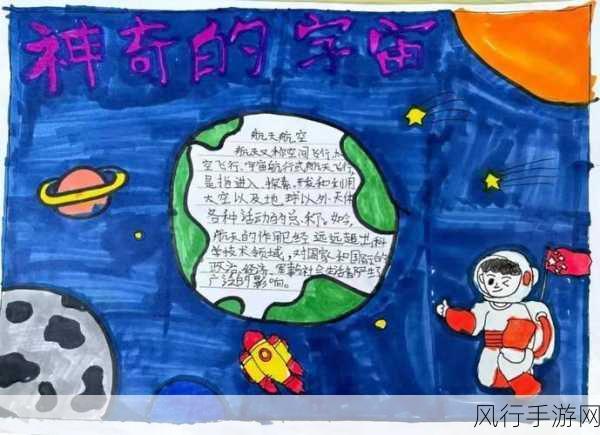 神奇的宇宙
航天航空
航天又称空间飞行,太
空飞行、宇宙航行或航天飞行,
是指进入、探索、开发和利用
太空以及地球以外天体
各种活动的总称。如今,
航天的作用已经远远超出科
学技术领域,对国家和国际的
政治、经济、军事以及社会生活都产生了
广泛的影响。
风行手游网